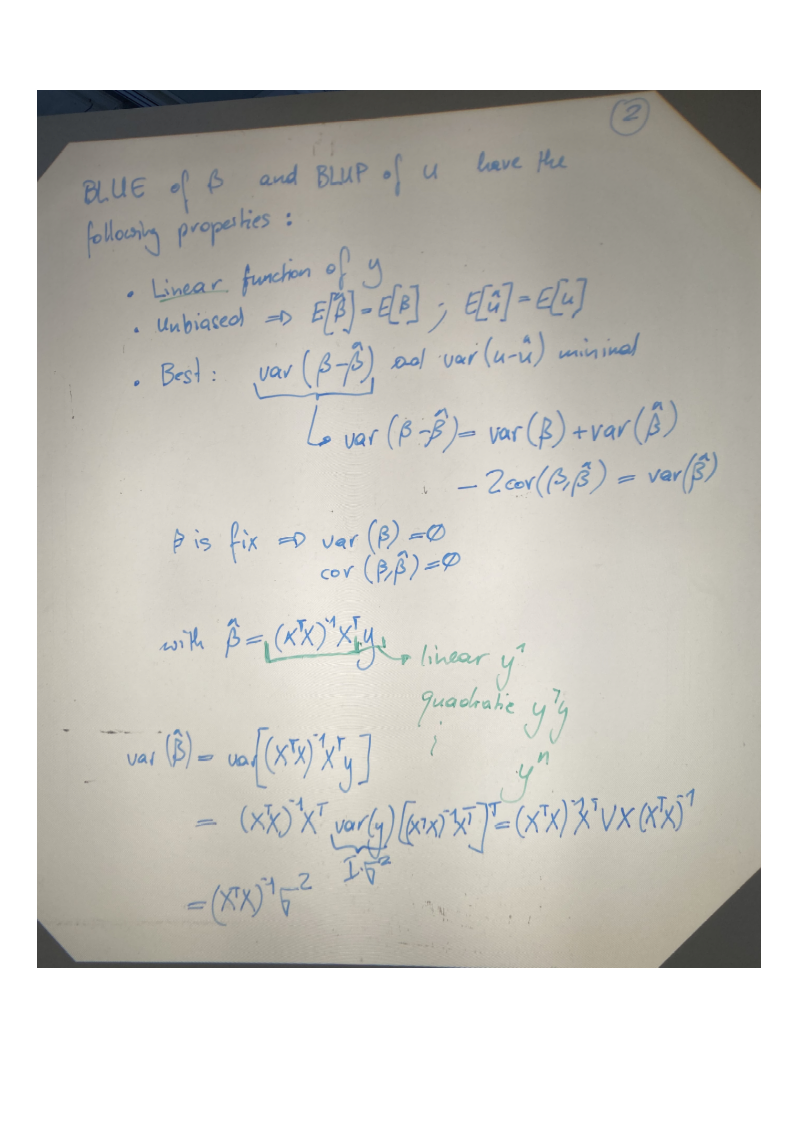 2
BLUE of β and BLUP of u have the
following properties :
• Linear function of y
• Unbiased => E[β̂] = E[β] ; E[û] = E[u]
• Best : var (β-β̂) and var (u-û) minimal
↳ var (β-β̂) = var(β) + var(β̂)
- 2cor(β,β̂) = var(β̂)
β is fix => var (β) = ∅
cor (β,β̂) = ∅
with β̂ = (XᵀX)⁻¹Xᵀy → linear y¹
quadratic yᵀy
⋮
yⁿ
var (β̂) = var[(XᵀX)⁻¹Xᵀy]
= (XᵀX)⁻¹Xᵀ var(y) [(XᵀX)⁻¹Xᵀ]ᵀ = (XᵀX)⁻¹XᵀVX(XᵀX)⁻¹
I·σ²
= (XᵀX)⁻¹σ²